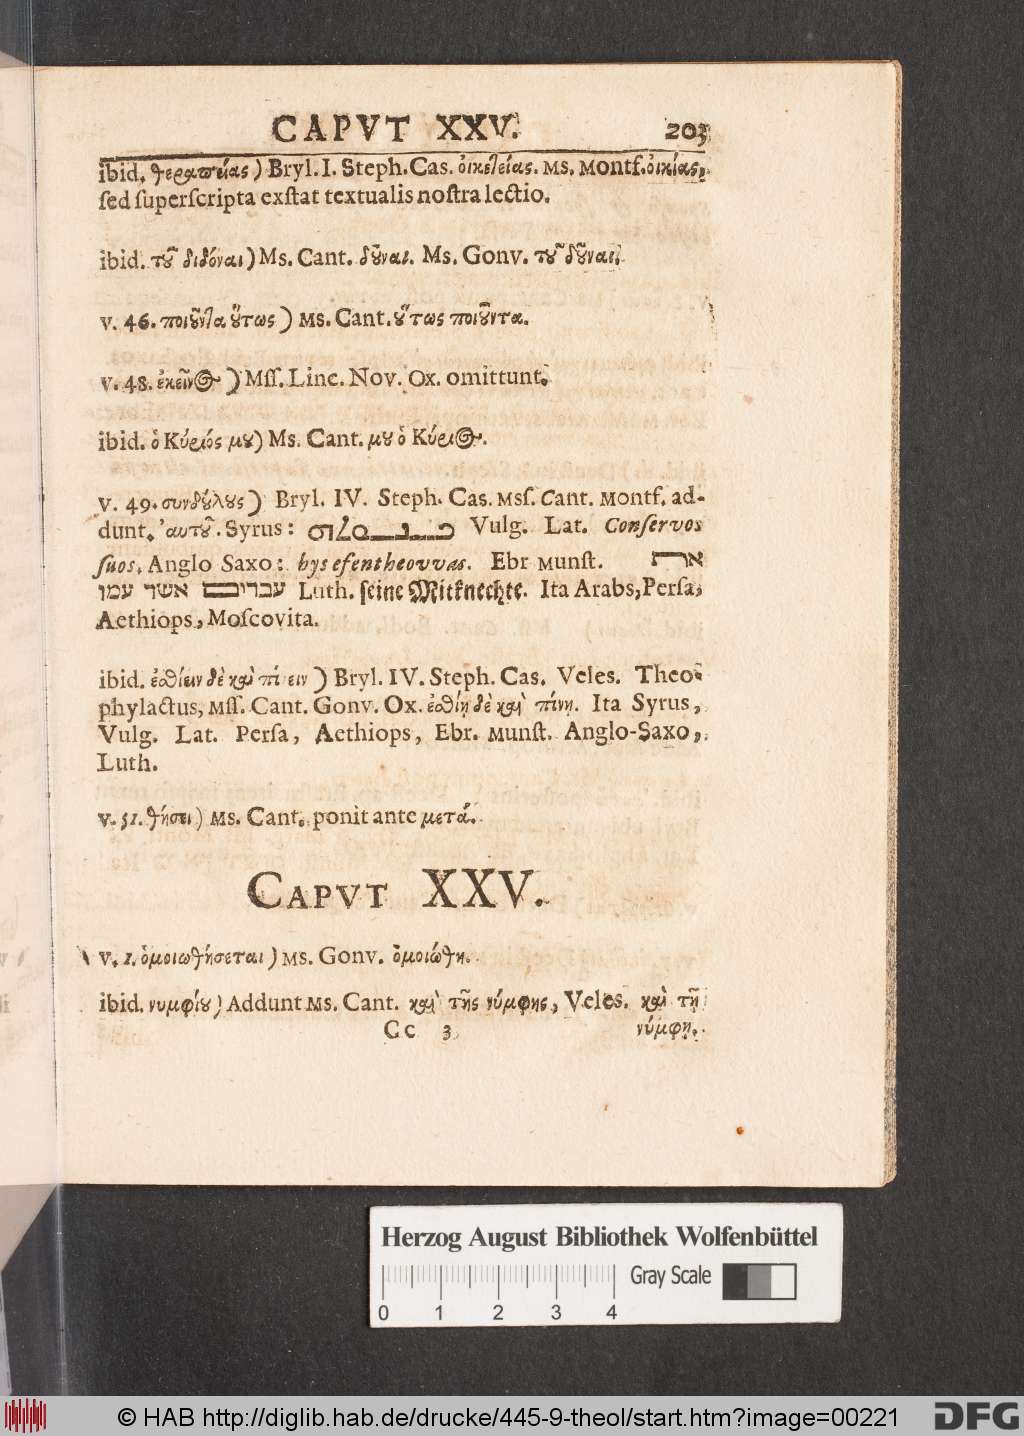 CAPVT XXV. 203
ibid. θεραπείας) Bryl. I. Steph. Cas. οἰκετείας. Ms. Montf. οἰκίας,
ſed ſuperſcripta exſtat textualis noſtra lectio.
ibid. τȣ͂ διδόναι) Ms. Cant. δȣ͂ναι. Ms. Gonv. τȣ͂ δȣ͂ναι.
v. 46. ποιȣ͂ντα ȣ̔́τως) Ms. Cant. ȣ̔́τως ποιȣ͂ντα.
v. 48. ἐκεῖνος) Mſſ. Linc. Nov. Ox. omittunt.
ibid. ὁ Κύριός μȣ) Ms. Cant. μȣ ὁ Κύριος.
v. 49. συνδȣ́λȣς) Bryl. IV. Steph. Cas. Msſ. Cant. Montf. ad-
dunt. ʼαυτȣ͂. Syrus: Vulg. Lat. Conſervos
ſuos. Anglo Saxo: hys efentheovvas. Ebr Munſt. את
עבריםם אשר עמו Luth. ſeine Mitknechte. Ita Arabs, Perſa,
Aethiops, Moſcovita.
ibid. ἐσθίειν δὲ καὶ πίνειν) Bryl. IV. Steph. Cas. Veles. Theo-
phylactus, Mſſ. Cant. Gonv. Ox. ἐσθίῃ δὲ καὶ πίνῃ. Ita Syrus,
Vulg. Lat. Perſa, Aethiops, Ebr. Munſt. Anglo-Saxo,
Luth.
v. 51. θήσει) Ms. Cant. ponit ante μετά.
CAPVT XXV.
v. 1. ὁμοιωθήσεται) Ms. Gonv. ὁμοιώθη.
ibid. νυμφίȣ) Addunt Ms. Cant. καὶ τῆς νύμφης, Veles. καὶ τῇ
Cc 3 νύμφῃ.
Herzog August Bibliothek Wolfenbüttel
Gray Scale
0 1 2 3 4
© HAB http://diglib.hab.de/drucke/445-9-theol/start.htm?image=00221 DFG